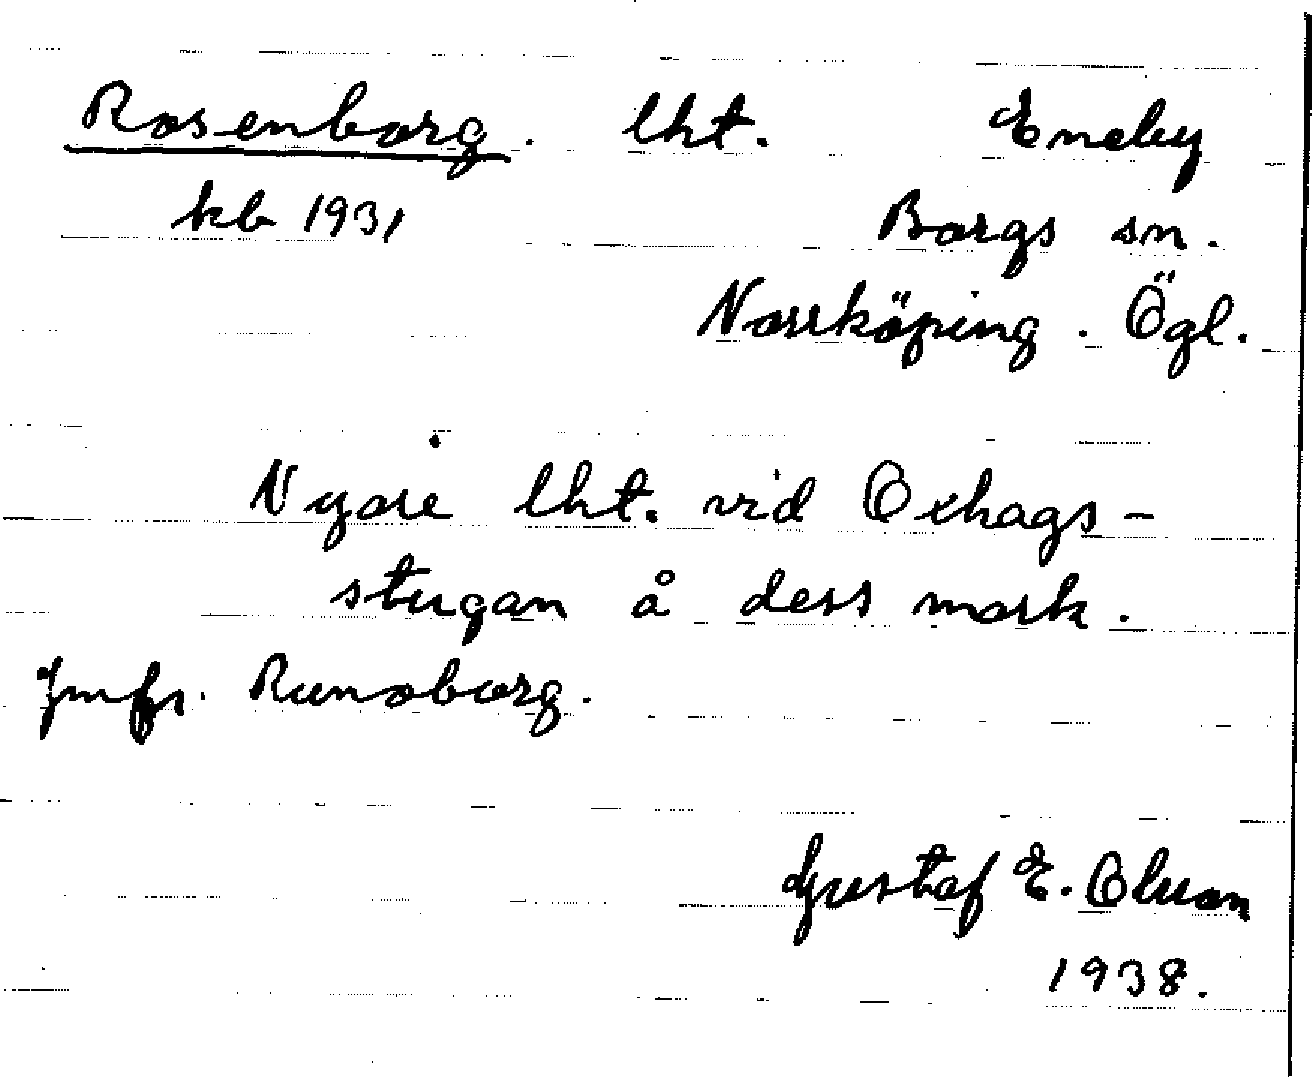 Rosenborg. lht. Eneby
kb 1931 Borgs sn.
Norrköping. Ögl.
Nyare lht. vid Oxhags-
stugan å dess mark.
Jmfr. Runoborg.
Gustaf E. Olsson
1938.